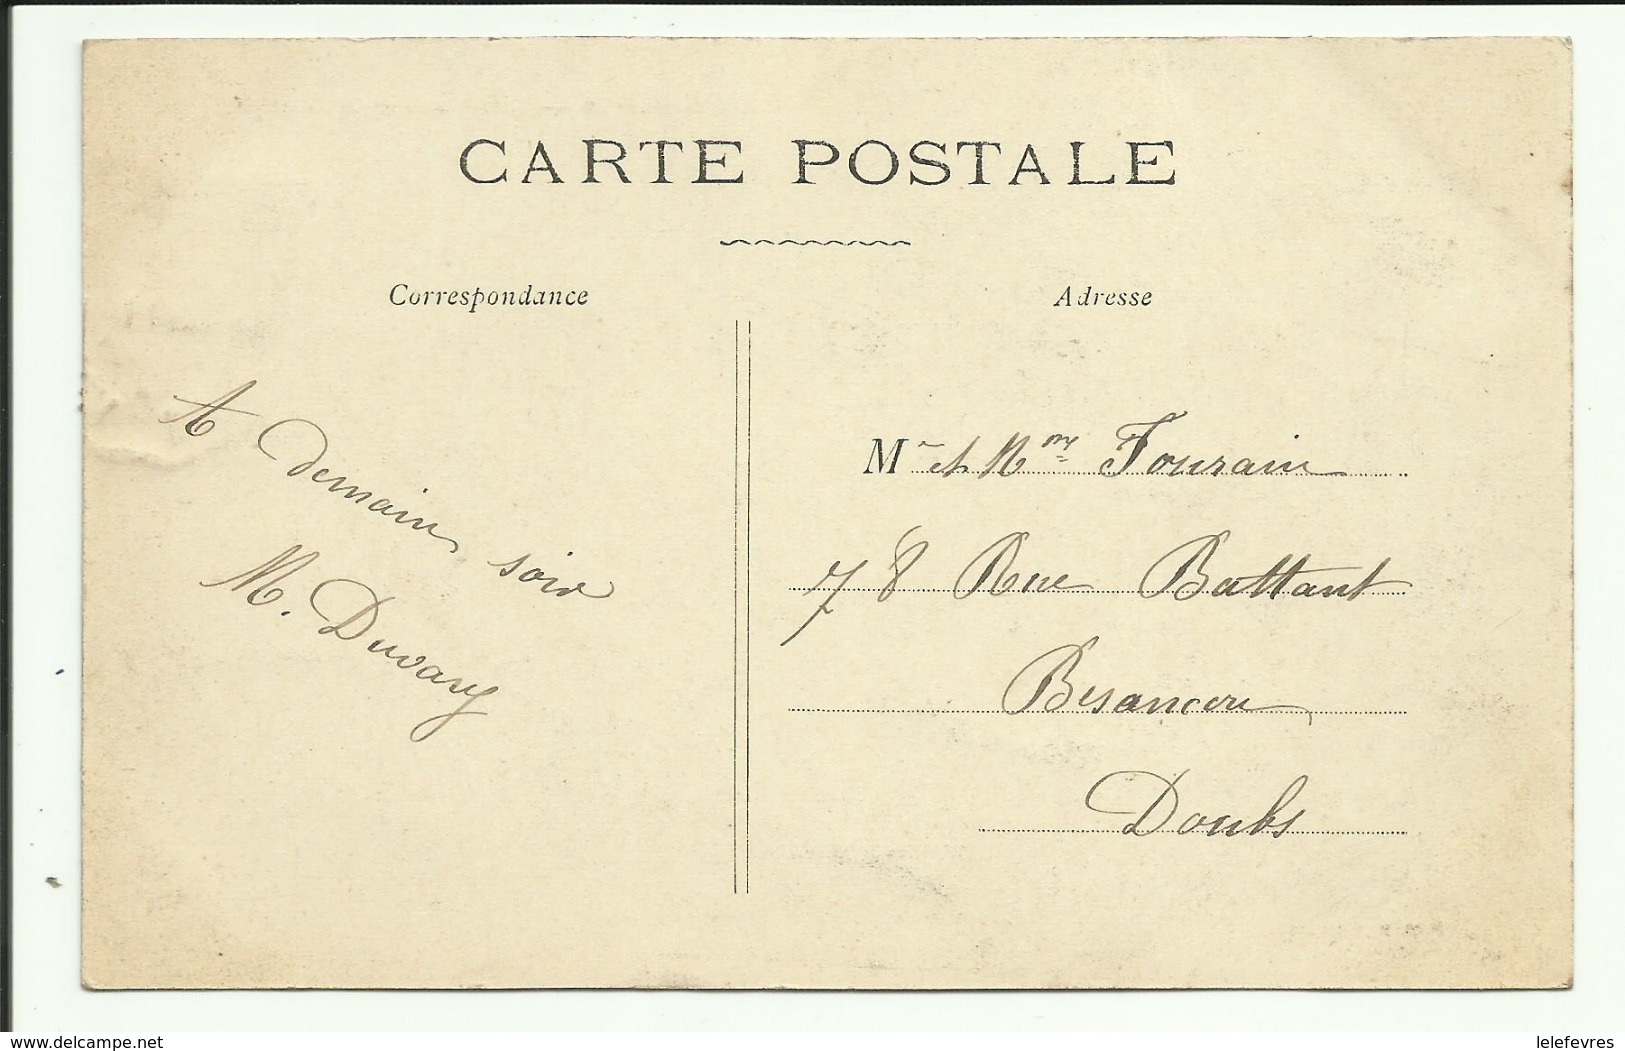 CARTE POSTALE
Correspondance
A demain soir
M. Duvary
Adresse
Mr et Mme Fourain
78 Rue Battant
Besancon
Doubs
www.delcampe.net
lelefevres